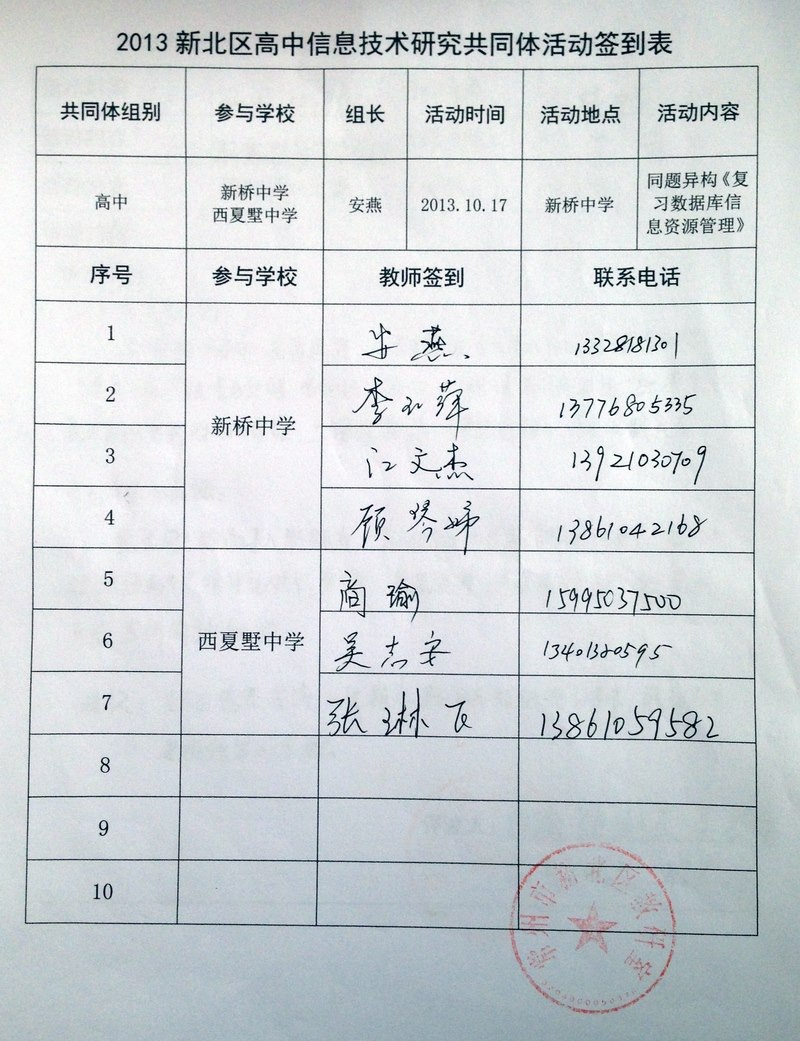 2013 新北区高中信息技术研究共同体活动签到表
共同体组别 参与学校 组长 活动时间 活动地点 活动内容
高中 新桥中学 西夏墅中学 安燕 2013.10.17 新桥中学 同题异构《复习数据库信息资源管理》
序号 参与学校 教师签到 联系电话
1 安燕 13328181301
2 李 萍 13776805335
新桥中学
3 江文杰 13921030709
4 顾琴娣 13861042168
5 商瑜 15995037500
6 西夏墅中学 吴志安 13401380595
7 张琳飞 13861059582
8
9
10
常州市新北区教研室